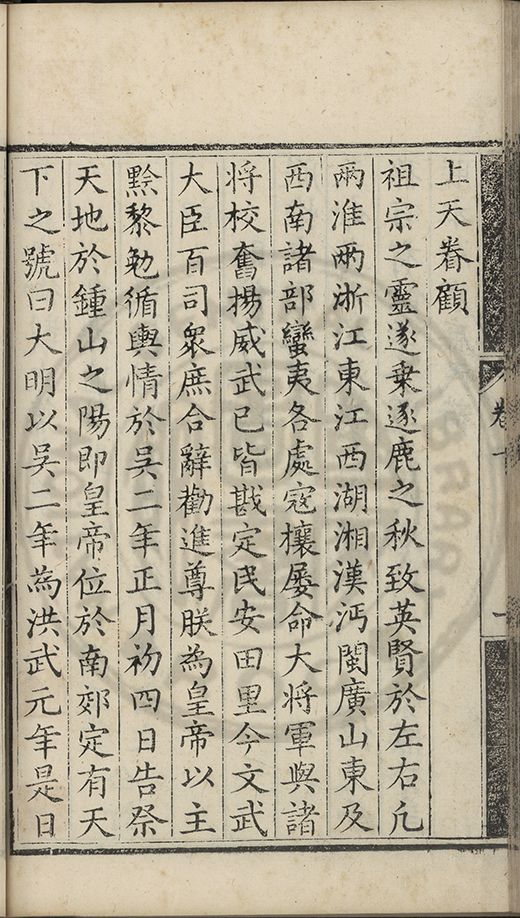 上天眷顧
祖宗之靈遂乗逐鹿之秋致英賢於左右凢
兩淮兩浙江東江西湖湘漢沔閩廣山東及
西南諸部蠻夷各處寇攘屡命大將軍與諸
将校奮揚威武已皆戡定民安田里今文武
大臣百司衆庶合辭勸進尊朕為皇帝以主
黔黎勉循輿情於吳二年正月初四日告祭
天地於鍾山之陽即皇帝位於南郊定有天
下之號曰大明以吳二年為洪武元年是日
卷
一